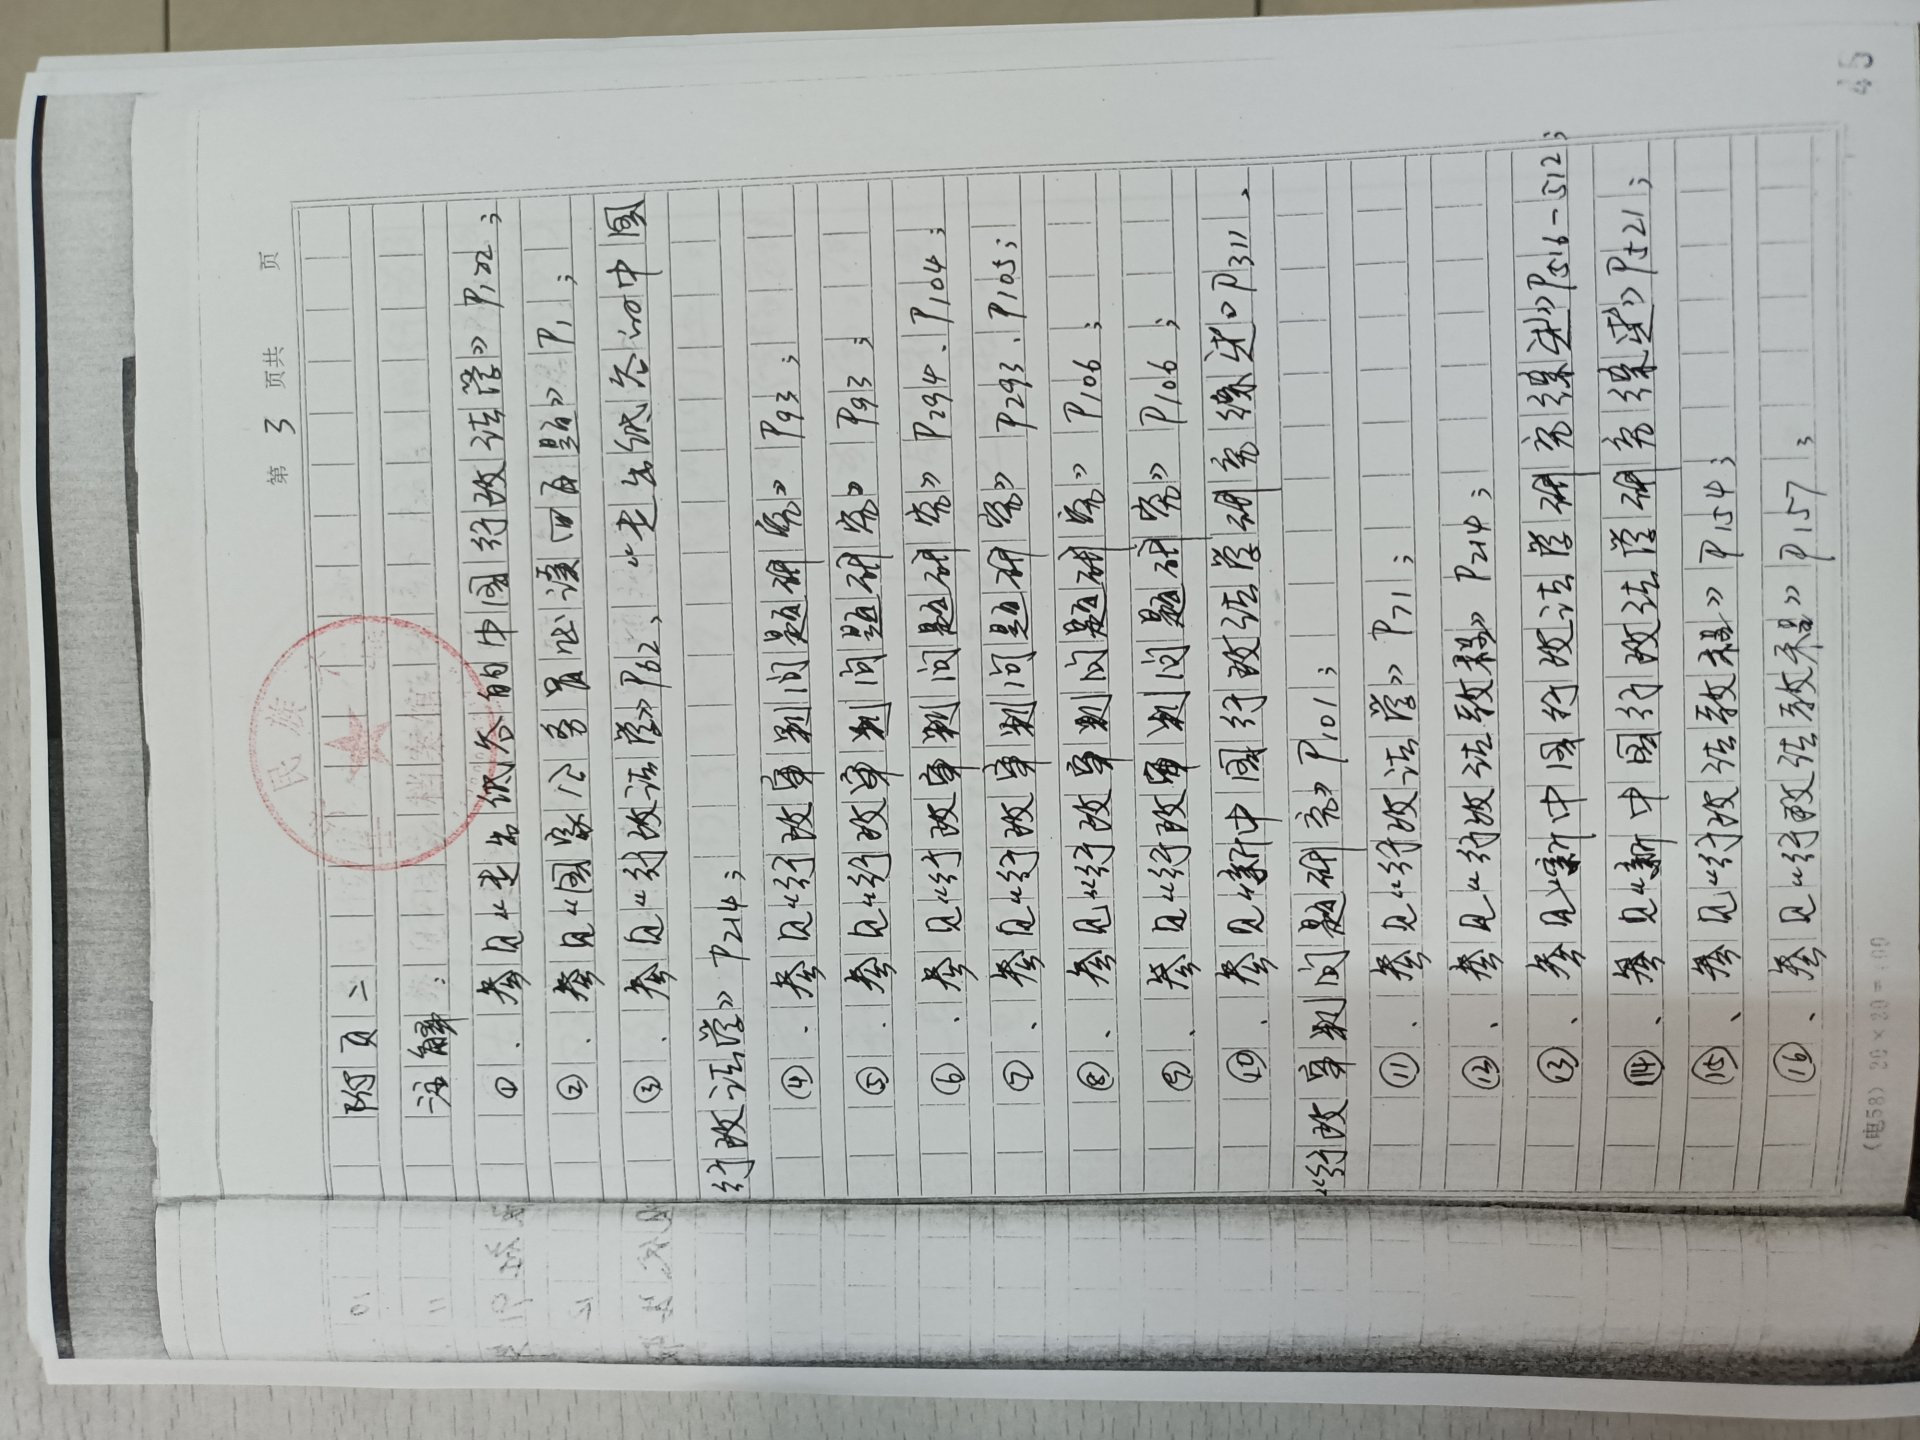 第 3 页共 页
附页二
注解:
①. 参见《走出低谷的中国行政法学》P122;
②. 参见《国家公务员必读四百题》P1;
③. 参见《行政法学》P62、《走出低谷的中国
行政法学》P214;
④. 参见《行政审判问题研究》P93;
⑤. 参见《行政审判问题研究》P93;
⑥. 参见《行政审判问题研究》P294、P104;
⑦、参见《行政审判问题研究》P293、P105;
⑧、参见《行政审判问题研究》P106;
⑨、参见《行政审判问题研究》P106;
⑩、参见《新中国行政法学研究综述》P311、
《行政审判问题研究》P101;
⑪. 参见《行政法学》P71;
⑫、参见《行政法教程》P214;
⑬、参见《新中国行政法学研究综述》P516-512;
⑭、参见《新中国行政法学研究综述》P521;
⑮、参见《行政法教程》P154;
⑯、参见《行政法教程》P157;
(电58) 20×20=400
45
民族
档案馆